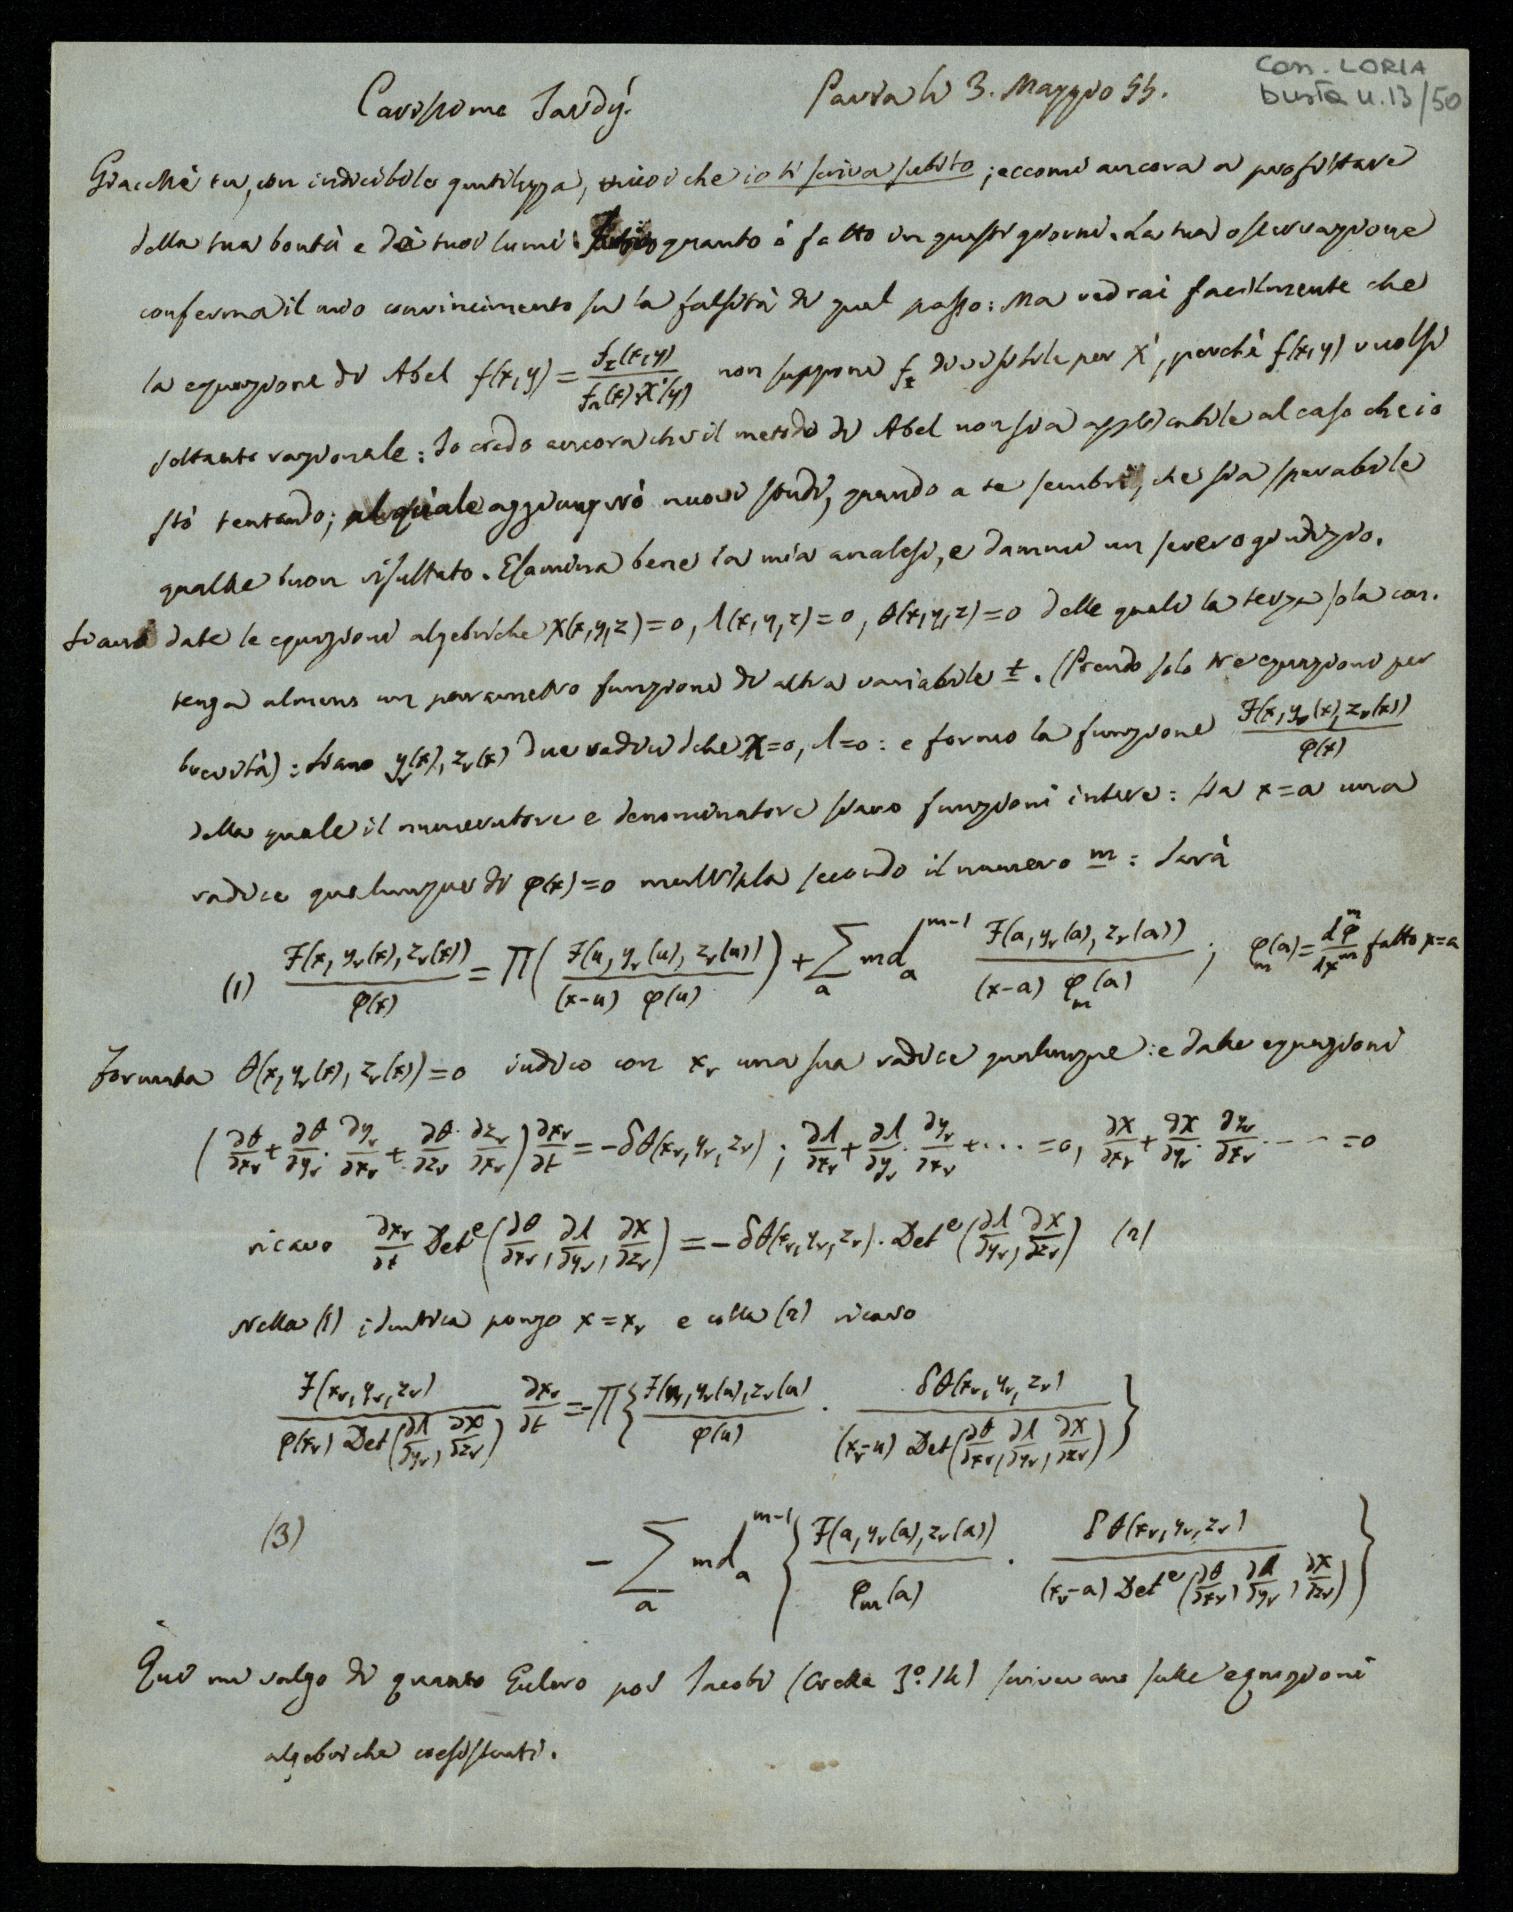 Con. LORIA
busta n. 13/50
Carissimo Tardy. Pavia li 3. Maggio 55.
Giacchè tu, con indicibile gentilezza, vuoi che io ti scriva subito; eccomi ancora a profittare
della tua bontà e dei tuoi lumi: quanto ò fatto in questi giorni. La tua osservazione
conferma il mio convincimento su la falsità di quel passo: Ma vedrai facilmente che
la equazione di Abel f(x,y) = f₂(x,y) / f₁(x).χ'(y) non suppone f₂ divisibile per χ', perchè f(x,y) vuolsi
soltanto razionale: Io credo ancora che il metodo di Abel non sia applicabile al caso che io
stò tentando; al quale aggiungerò nuovi studi, quando a te sembri, che sia sperabile
qualche buon risultato. Esamina bene la mia analisi, e dammi un severo giudizio.
Siano date le equazioni algebriche χ(x,y,z)=0, λ(x,y,z)=0, θ(x,y,z)=0 delle quali la terza sola con.
tenga almeno un parametro funzione di altra variabile t. (Prendo solo tre equazioni per
brevità): siano yᵣ(x), zᵣ(x) due radici di che χ=0, λ=0: e formo la funzione F(x, yᵣ(x), zᵣ(x)) / φ(x)
della quale il numeratore e denominatore siano funzioni intere: sia x=a una
radice qualunque di φ(x)=0 multipla secondo il numero m: Sarà
(1) F(x, yᵣ(x), zᵣ(x)) / φ(x) = Π( F(u, yᵣ(u), zᵣ(u)) / (x-u) φ(u) ) + Σₐ m dₐ^{m-1} F(a, yᵣ(a), zᵣ(a)) / (x-a) φₘ(a) ; φₘ(a) = d^mφ/dx^m fatto x=a
Formata θ(x, yᵣ(x), zᵣ(x))=0 indico con xᵣ una sua radice qualunque: e dalle equazioni
(∂θ/∂xᵣ + ∂θ/∂yᵣ · ∂yᵣ/∂xᵣ + ∂θ/∂zᵣ · ∂zᵣ/∂xᵣ) ∂xᵣ/∂t = -δθ(xᵣ, yᵣ, zᵣ) ; ∂λ/∂xᵣ + ∂λ/∂yᵣ · ∂yᵣ/∂xᵣ + ··· =0, ∂χ/∂xᵣ + ∂χ/∂yᵣ · ∂yᵣ/∂xᵣ ···· =0
ricavo ∂xᵣ/∂t Detᵉ(∂θ/∂xᵣ, ∂λ/∂yᵣ, ∂χ/∂zᵣ) = -δθ(xᵣ, yᵣ, zᵣ) · Detᵉ(∂λ/∂yᵣ, ∂χ/∂zᵣ) (2)
Nella (1) identica pongo x=xᵣ e colla (2) ricavo
F(xᵣ, yᵣ, zᵣ) / φ(xᵣ) Det(∂λ/∂yᵣ, ∂χ/∂zᵣ) ∂xᵣ/∂t = -Π{ F(u, yᵣ(u), zᵣ(u)) / φ(u) · δθ(xᵣ, yᵣ, zᵣ) / (xᵣ-u) Det(∂θ/∂xᵣ, ∂λ/∂yᵣ, ∂χ/∂zᵣ) }
(3) - Σₐ m dₐ^{m-1} { F(a, yᵣ(a), zᵣ(a)) / φₘ(a) · δθ(xᵣ, yᵣ, zᵣ) / (xᵣ-a) Detᵉ(∂θ/∂xᵣ, ∂λ/∂yᵣ, ∂χ/∂zᵣ) }
Qui mi valgo di quanto Eulero poi Jacobi (Crelle 14) scrivevano sulle equazioni
algebriche coesistenti.